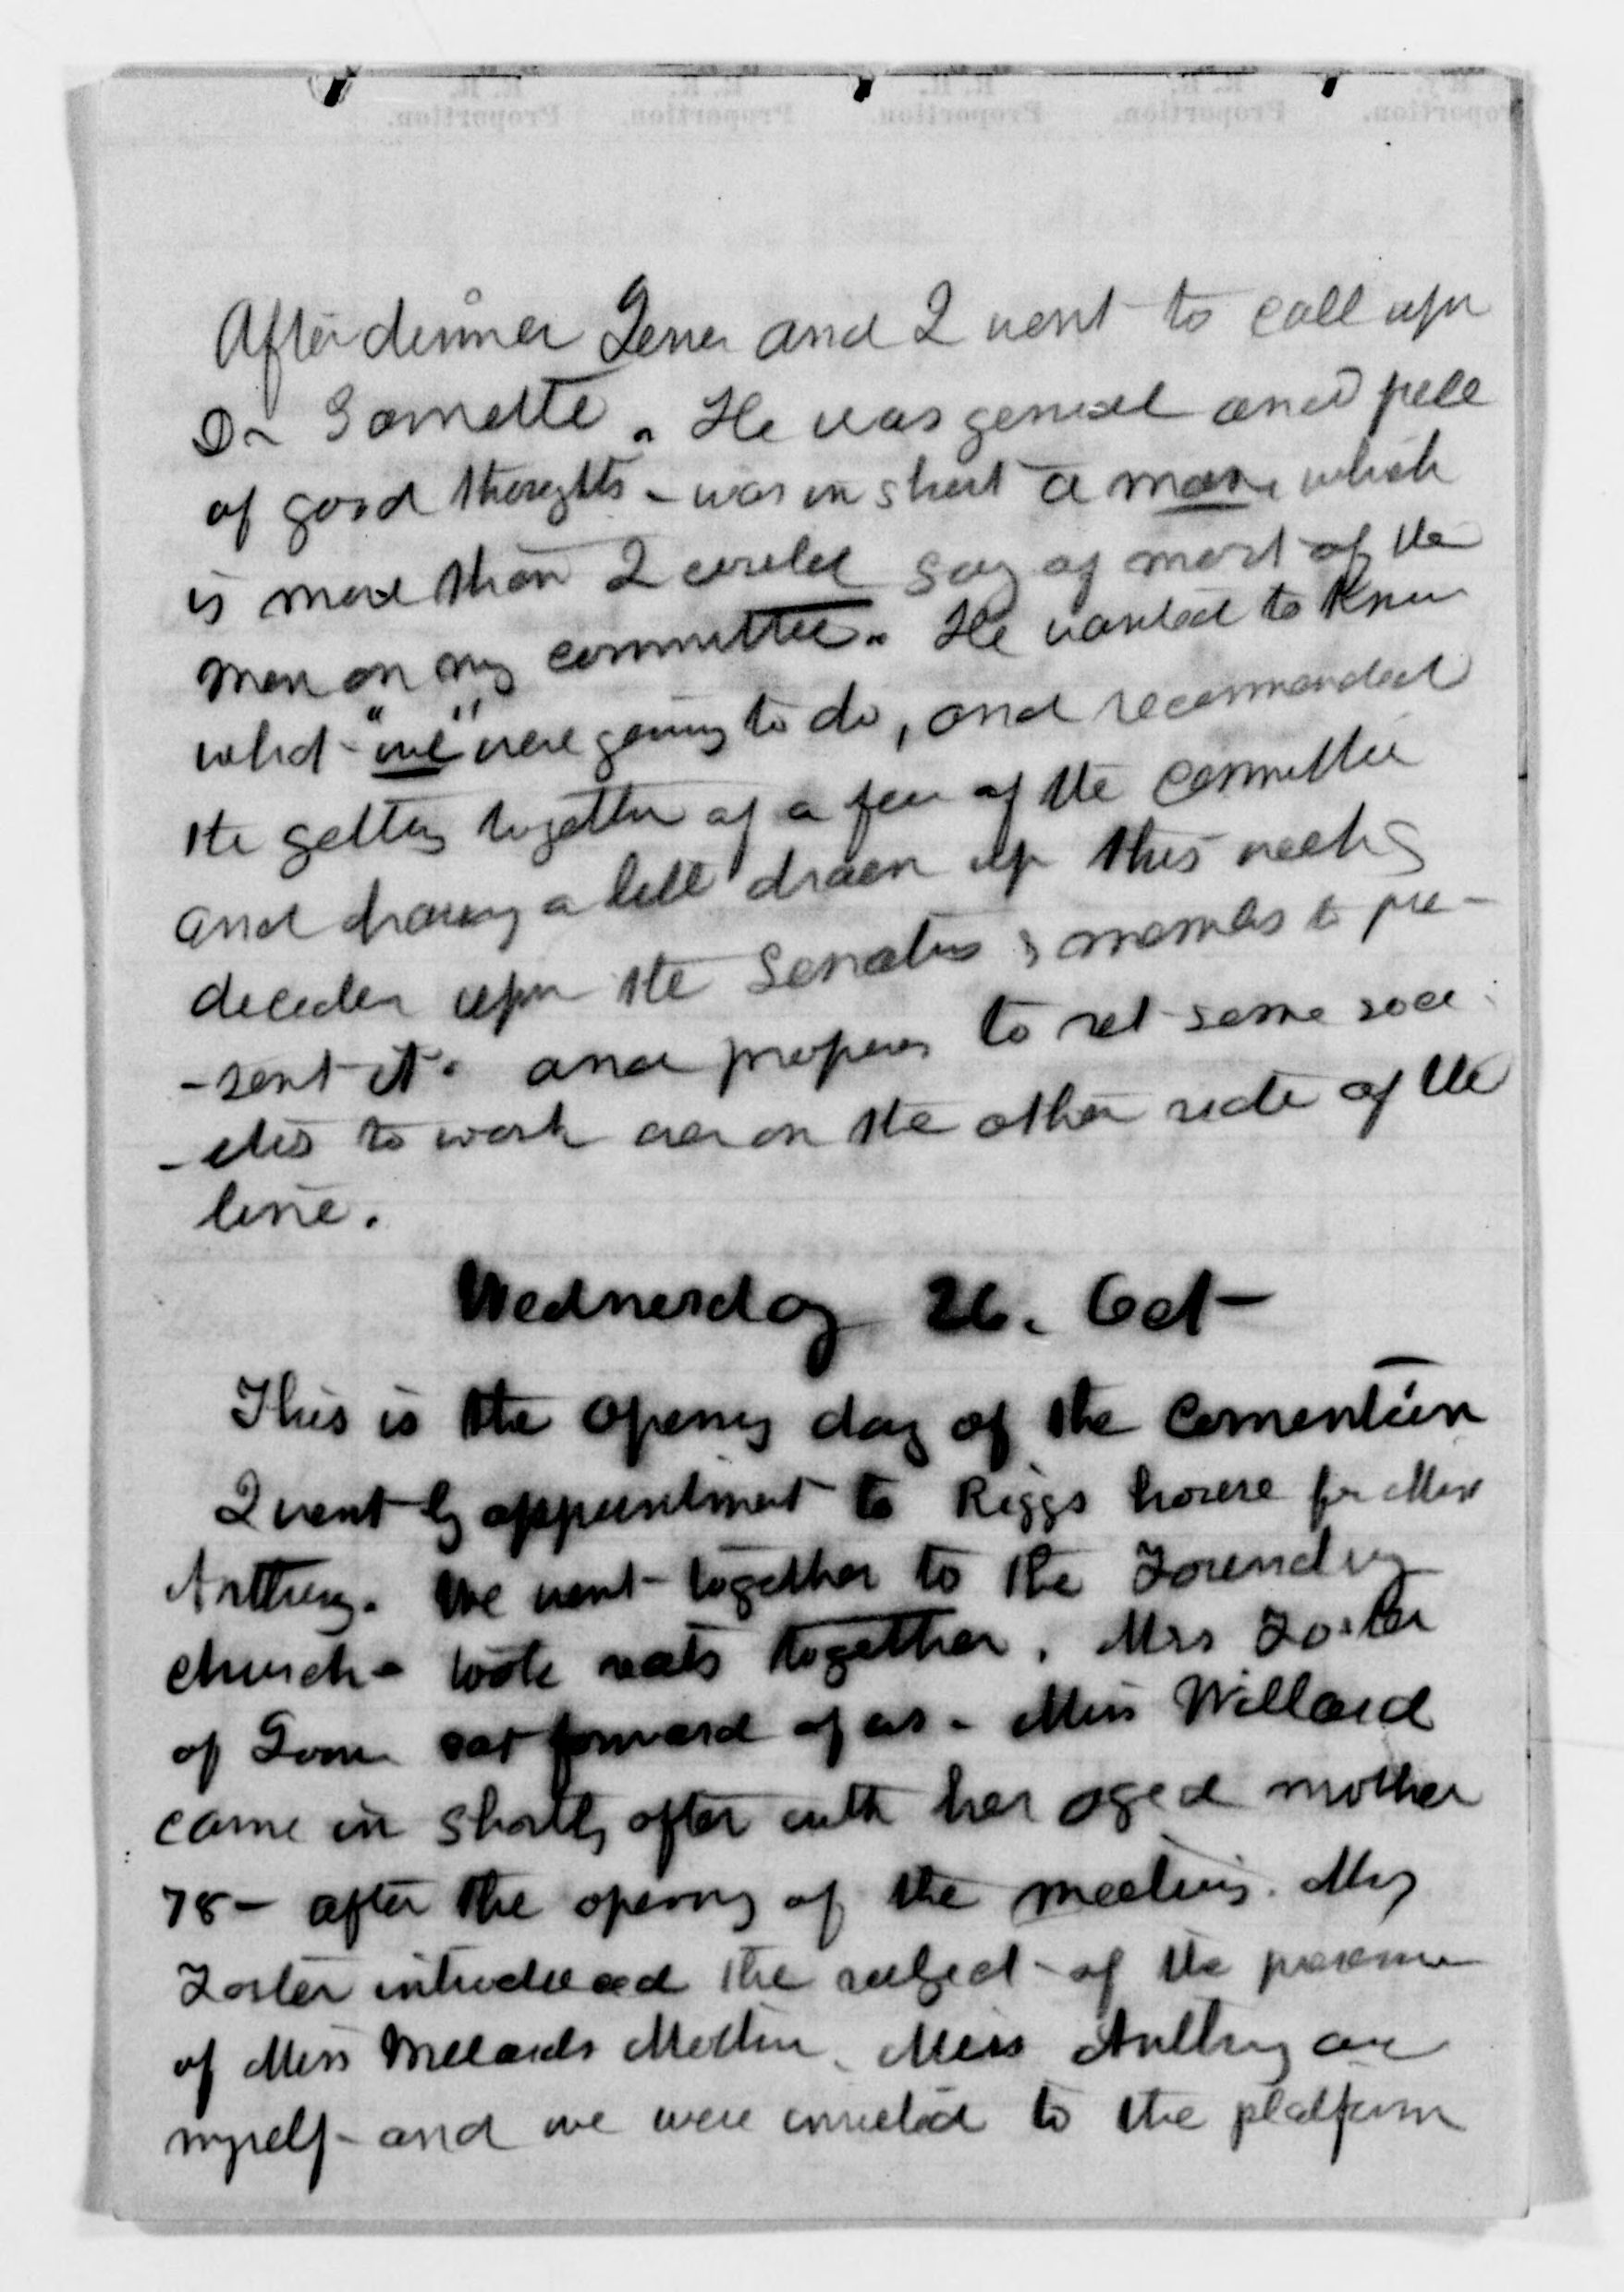 After dinner and I went to call upon
Dr Garnette. He was genial and full
of good thoughts - was in short a man, which
is more than I could say of most of the
men on my committee. He wanted to know
what "we" were going to do, and recommended
the getting together of a few of the committee
and having a bill drawn up this week &
decides upon the Senators & members to pre-
-sent it. and proposes to set some soci
-eties to work over on the other side of the
line.
Wednesday 26. Oct-
This is the opening day of the convention
I went by appointment to Riggs house for Miss
Anthony. We went together to the Foundry
church - took seats together. Mrs Foster
of Iowa sat forward of us - Miss Willard
came in shortly after with her aged mother
78 - after the opening of the meeting. Mrs
Foster introduced the subject of the presence
of Miss Willards Mother, Miss Anthony and
myself - and we were invited to the platform